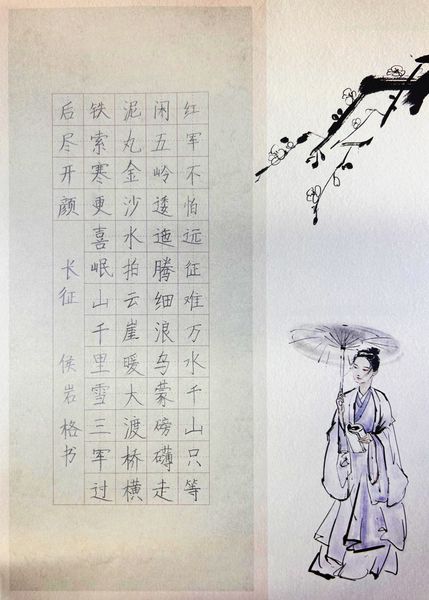 红军不怕远征难万水千山只等
闲五岭逶迤腾细浪乌蒙磅礴走
泥丸金沙水拍云崖暖大渡桥横
铁索寒更喜岷山千里雪三军过
后尽开颜 长征 侯岩格书